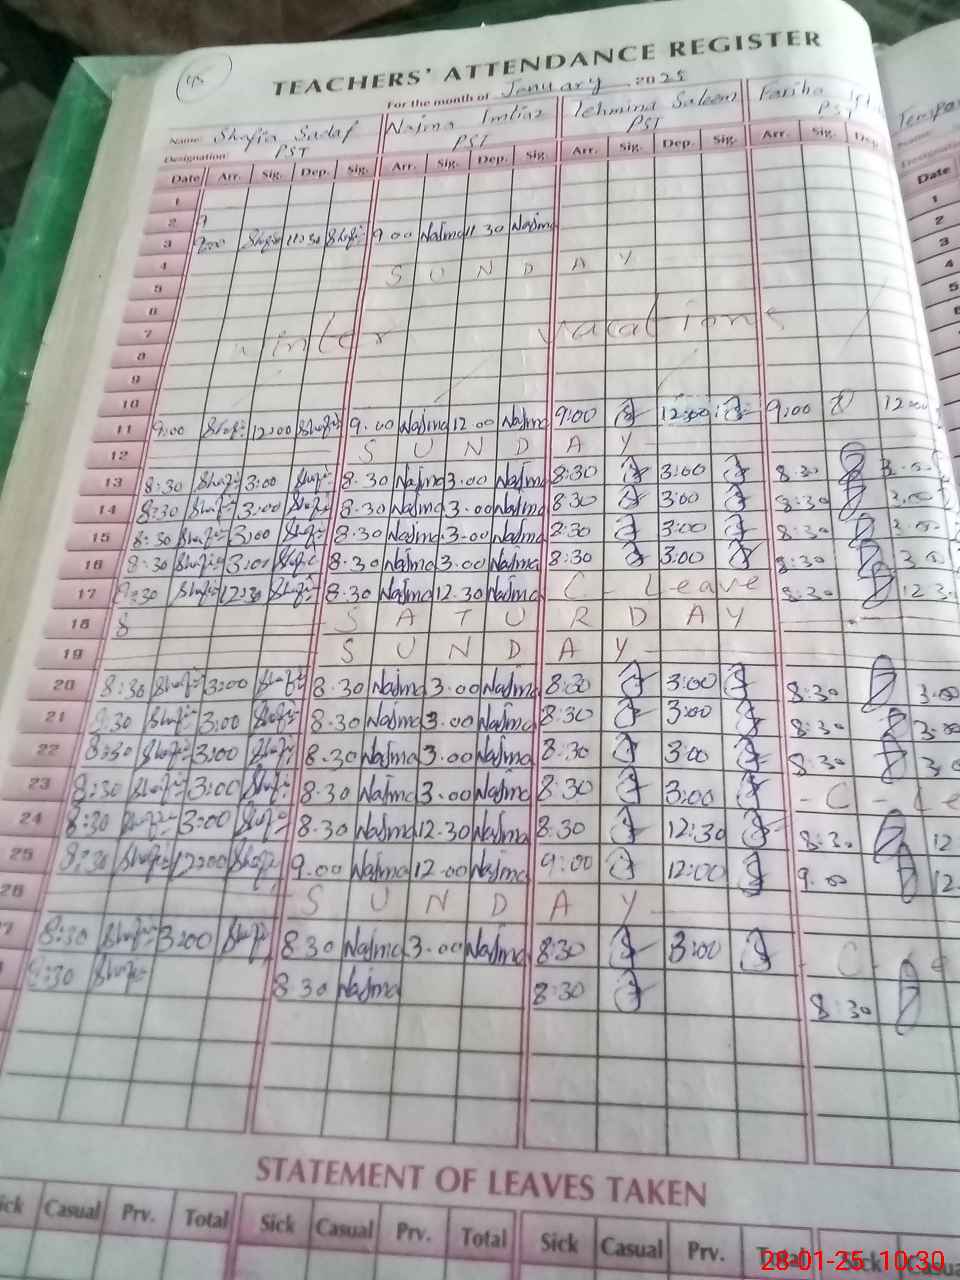 45
TEACHERS' ATTENDANCE REGISTER
For the month of January 2025
Name: Shafia Sadaf Najma Imtiaz Tehmina Saleem Fariha
Designation: PST PST PST PST
Date Arr. Sig. Dep. Sig. Arr. Sig. Dep. Sig. Arr. Sig. Dep. Sig. Arr. Sig. Dep. Date
1
2 9
3 9:00 Shafi 11:30 Shafi 9.00 Najma 11.30 Najma
4
5 SUNDAY
6
7 winter vacations
8
9
10
11 9:00 Shafi 12:00 Shafi 9.00 Najma 12.00 Najma 9:00 12:00 9:00 12:00
12 SUNDAY
13 8:30 Shafi 3:00 Shafi 8.30 Najma 3.00 Najma 8:30 3:00 8:30 3.00
14 8:30 Shafi 3:00 Shafi 8.30 Najma 3.00 Najma 8:30 3:00 8:30 3.00
15 8:30 Shafi 3:00 Shafi 8.30 Najma 3.00 Najma 8:30 3:00 8:30 3.00
16 8:30 Shafi 3:00 Shafi 8.30 Najma 3.00 Najma 8:30 3:00 8:30 3.00
17 8:30 Shafi 12:30 Shafi 8.30 Najma 12.30 Najma C - Leave 8:30 12.3
18 8 SATURDAY
19 SUNDAY
20 8:30 Shafi 3:00 Shafi 8.30 Najma 3.00 Najma 8:30 3:00 8:30 3.00
21 8:30 Shafi 3:00 Shafi 8.30 Najma 3.00 Najma 8:30 3:00 8:30 3.00
22 8:30 Shafi 3:00 Shafi 8.30 Najma 3.00 Najma 8:30 3:00 8:30 3.0
23 8:30 Shafi 3:00 Shafi 8.30 Najma 3.00 Najma 8:30 3:00 - C - Le
24 8:30 Shafi 3:00 Shafi 8.30 Najma 12.30 Najma 8:30 12:30 8:30 12
25 8:30 Shafi 12:00 Shafi 9.00 Najma 12.00 Najma 9:00 12:00 9.00 12
26 SUNDAY
7 8:30 Shafi 3:00 Shafi 8 30 Najma 3.00 Najma 8:30 3:00 C
8:30 Shafi 8 30 Najma 8:30 8:30
STATEMENT OF LEAVES TAKEN
ick Casual Prv. Total Sick Casual Prv. Total Sick Casual Prv. Total Sick Casua
28-01-25 10:30